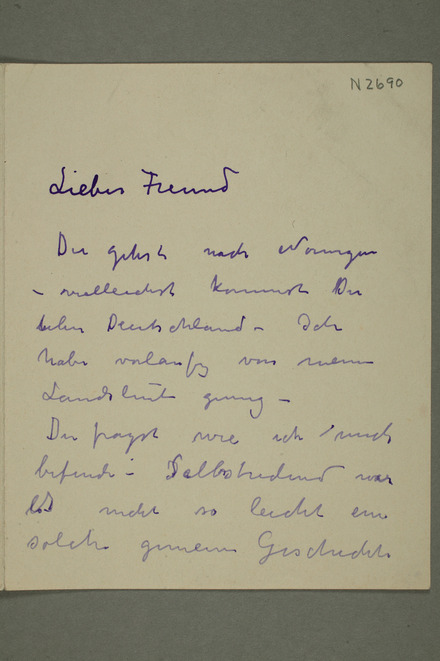 N2690
Lieber Freund
Du gehst nach Norwegen
– vielleicht kommst Du
Deutschland – Ich
habe vorläufig von meinen
Landsleute genug –
Du fragst wie ich mich
befinde – Selbstredend war
es nicht so leicht eine
solche gemeine Geschichte